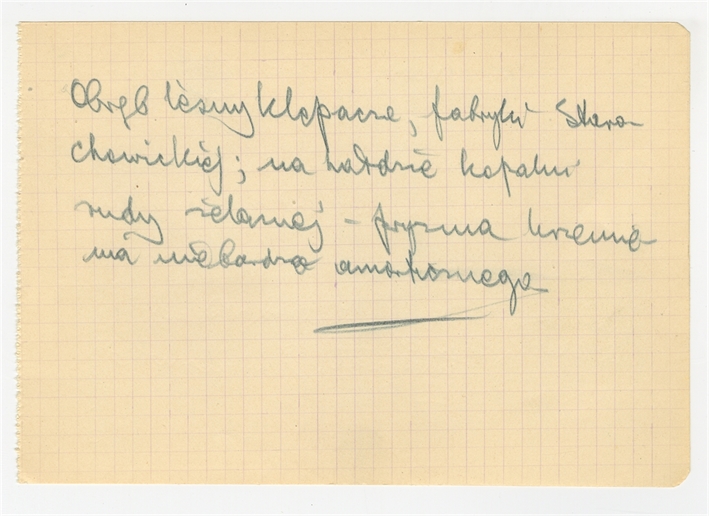 Obręb leśny Klepacze, fabryki Stara-
chowickiej; na hałdzie kopalni
rudy żelaznej – pryzma krzemie
nia niebardzo